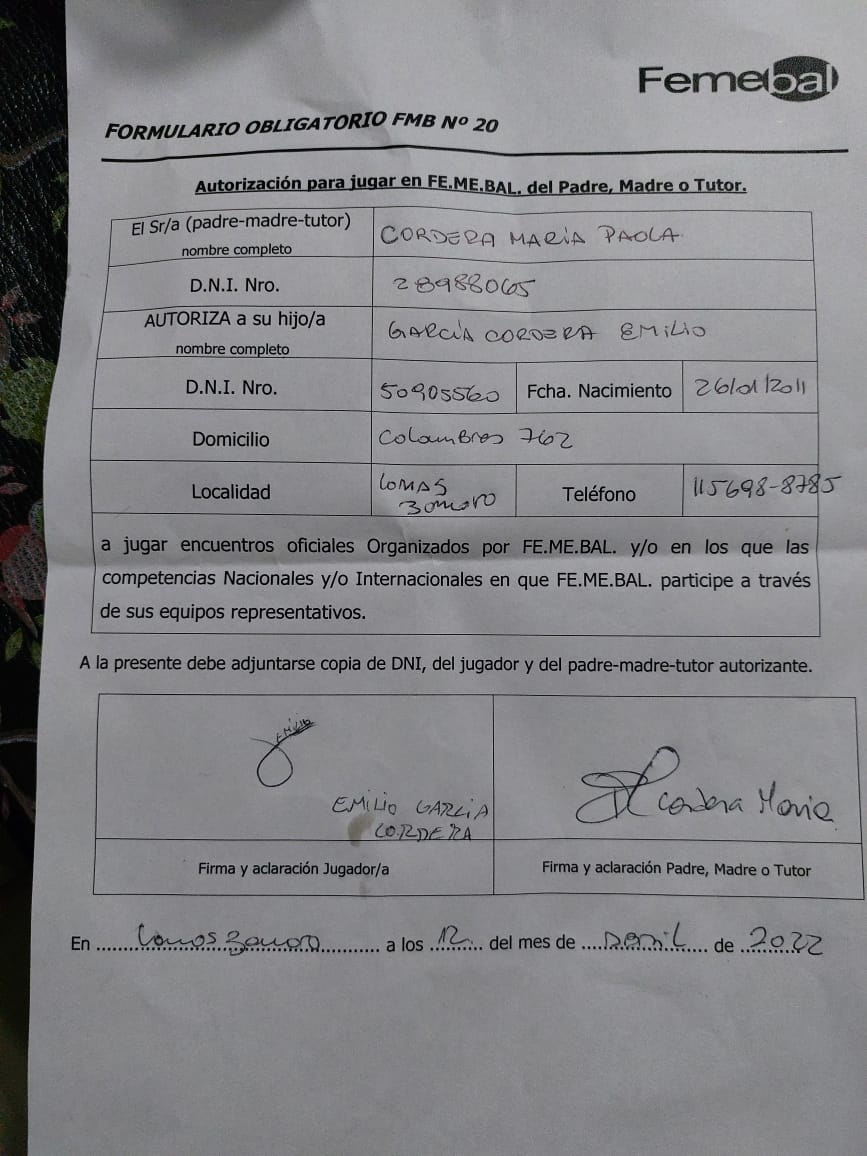 Femebal
FORMULARIO OBLIGATORIO FMB Nº 20
Autorización para jugar en FE.ME.BAL. del Padre, Madre o Tutor.
El Sr/a (padre-madre-tutor)
nombre completo
CORDERA MARÍA PAOLA
D.N.I. Nro.
28988065
AUTORIZA a su hijo/a
nombre completo
GARCÍA CORDERA EMILIO
D.N.I. Nro.
50905560
Fcha. Nacimiento
26/01/2011
Domicilio
Colombres 762
Localidad
LOMAS
Zamora
Teléfono
115698-8785
a jugar encuentros oficiales Organizados por FE.ME.BAL. y/o en los que las
competencias Nacionales y/o Internacionales en que FE.ME.BAL. participe a través
de sus equipos representativos.
A la presente debe adjuntarse copia de DNI, del jugador y del padre-madre-tutor autorizante.
EMILIO
EMILIO GARCIA
CORDERA
Cordera Maria
Firma y aclaración Jugador/a
Firma y aclaración Padre, Madre o Tutor
En Lomas Zamora a los 12 del mes de Abril de 2022